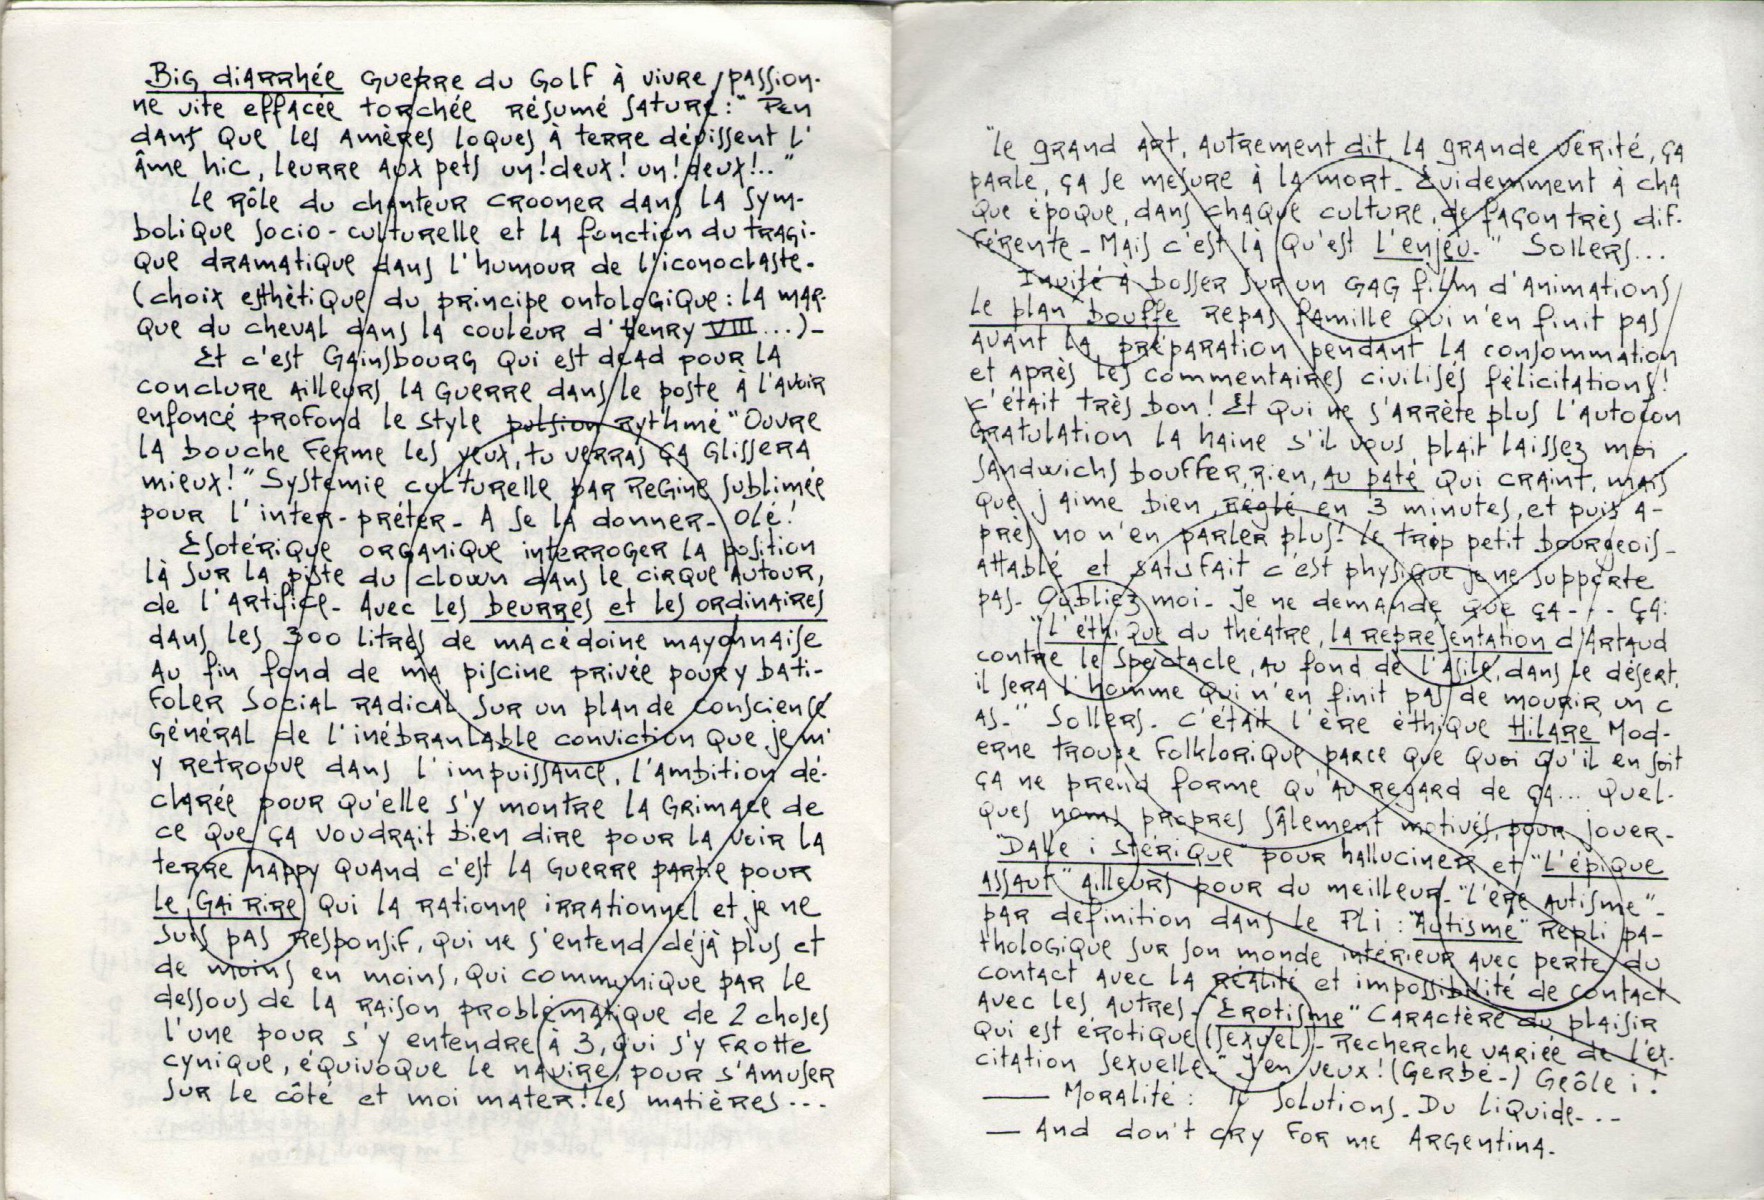 Big diarrhée guerre du Golf à vivre, passion-
né vite effacée torchée résumé saturé : " Pen
dant que les amères loques à terre dévissent l'
âme hic, leurre aux pets un! deux! un! deux!.. "
Le rôle du chanteur crooner dans la sym-
bolique socio-culturelle et la fonction du tragi-
que dramatique dans l'humour de l'iconoclaste.
(choix esthètique du principe ontologique : la mar-
que du cheval dans la couleur d'Henry VIII ...)_
Et c'est Gainsbourg qui est dead pour la
conclure ailleurs, la guerre dans le poste à l'avoir
enfoncé profond le style pulsion rythmé " Ouvre
la bouche ferme les yeux, tu verras ça glissera
mieux! " Systemie culturelle par Regine sublimée
pour l'inter-préter_ A se la donner_ Olé!
Esotérique organique interroger la position
là sur la piste du clown dans le cirque autour,
de l'artifice_ Avec les beurres et les ordinaires
dans les 300 litres de macédoine mayonnaise
au fin fond de ma piscine privée pour y bati-
foler social radical sur un plan de conscience
général de l'inébranlable conviction que je m'
y retrouve dans l'impuissance, l'ambition dé-
clarée pour qu'elle s'y montre la grimace de
ce que ça voudrait bien dire pour la voir la
terre happy quand c'est la guerre partie pour
le, Gai rire qui la rationne irrationnel et je ne
suis pas responsif, qui ne s'entend déjà plus et
de moins en moins, qui communique par le
dessous de la raison problématique de 2 choses
l'une pour s'y entendre à 3, qui s'y frotte
cynique, équivoque le navire, pour s'amuser
sur le côté et moi mater! les matières ...
"Le grand art, autrement dit la grande vérité, ça
parle, ça se mesure à la mort_ Evidemment à cha
que époque, dans chaque culture, de façon très dif-
férente_ Mais c'est là qu'est l'enjeu." Sollers...
Invité à bosser sur un GAG film d'animations
le plan bouffe repas famille qui n'en finit pas
avant la préparation pendant la consommation
et après les commentaires civilisés félicitations!
c'était très bon! Et qui ne s'arrète plus l'autocon
gratulation la haine s'il vous plait laissez moi
sandwichs bouffer, rien, au paté qui craint, mais
que j'aime bien, réglé en 3 minutes, et puis a-
près no n'en parler plus! Le trop petit bourgeois_
attablé et satisfait c'est physique je ne supporte
pas_ Oubliez moi_ Je ne demande que ça - - - ça:
"L'éthique du théatre, la representation d'Artaud
contre le spectacle, au fond de l'asile, dans le désert,
il sera l'homme qui n'en finit pas de mourir, un c
as_" Sollers_ C'était l'ère èthique Hilare Mod-
erne trouve folklorique parce que quoi qu'il en soit
ça ne prend forme qu'au regard de ça... Quel-
ques noms propres sâlement motivés, pour jouer_
"Dalle i stérique" pour halluciner et "L'épique
assaut" ailleurs pour du meilleur_ "L'ère autisme"_
par définition dans le Pli : "Autisme" repli pa-
thologique sur son monde intérieur avec perte du
contact avec la réalité et impossibilité de contact
avec les autres_ "Erotisme" Caractère du plaisir
qui est érotique (sexuel)_ Recherche variée de l'ex-
citation sexuelle_" J'en veux! (Gerbe_) Geôle i!
— Moralité : solutions_ Du liquide - - -
— And don't cry for me Argentina.